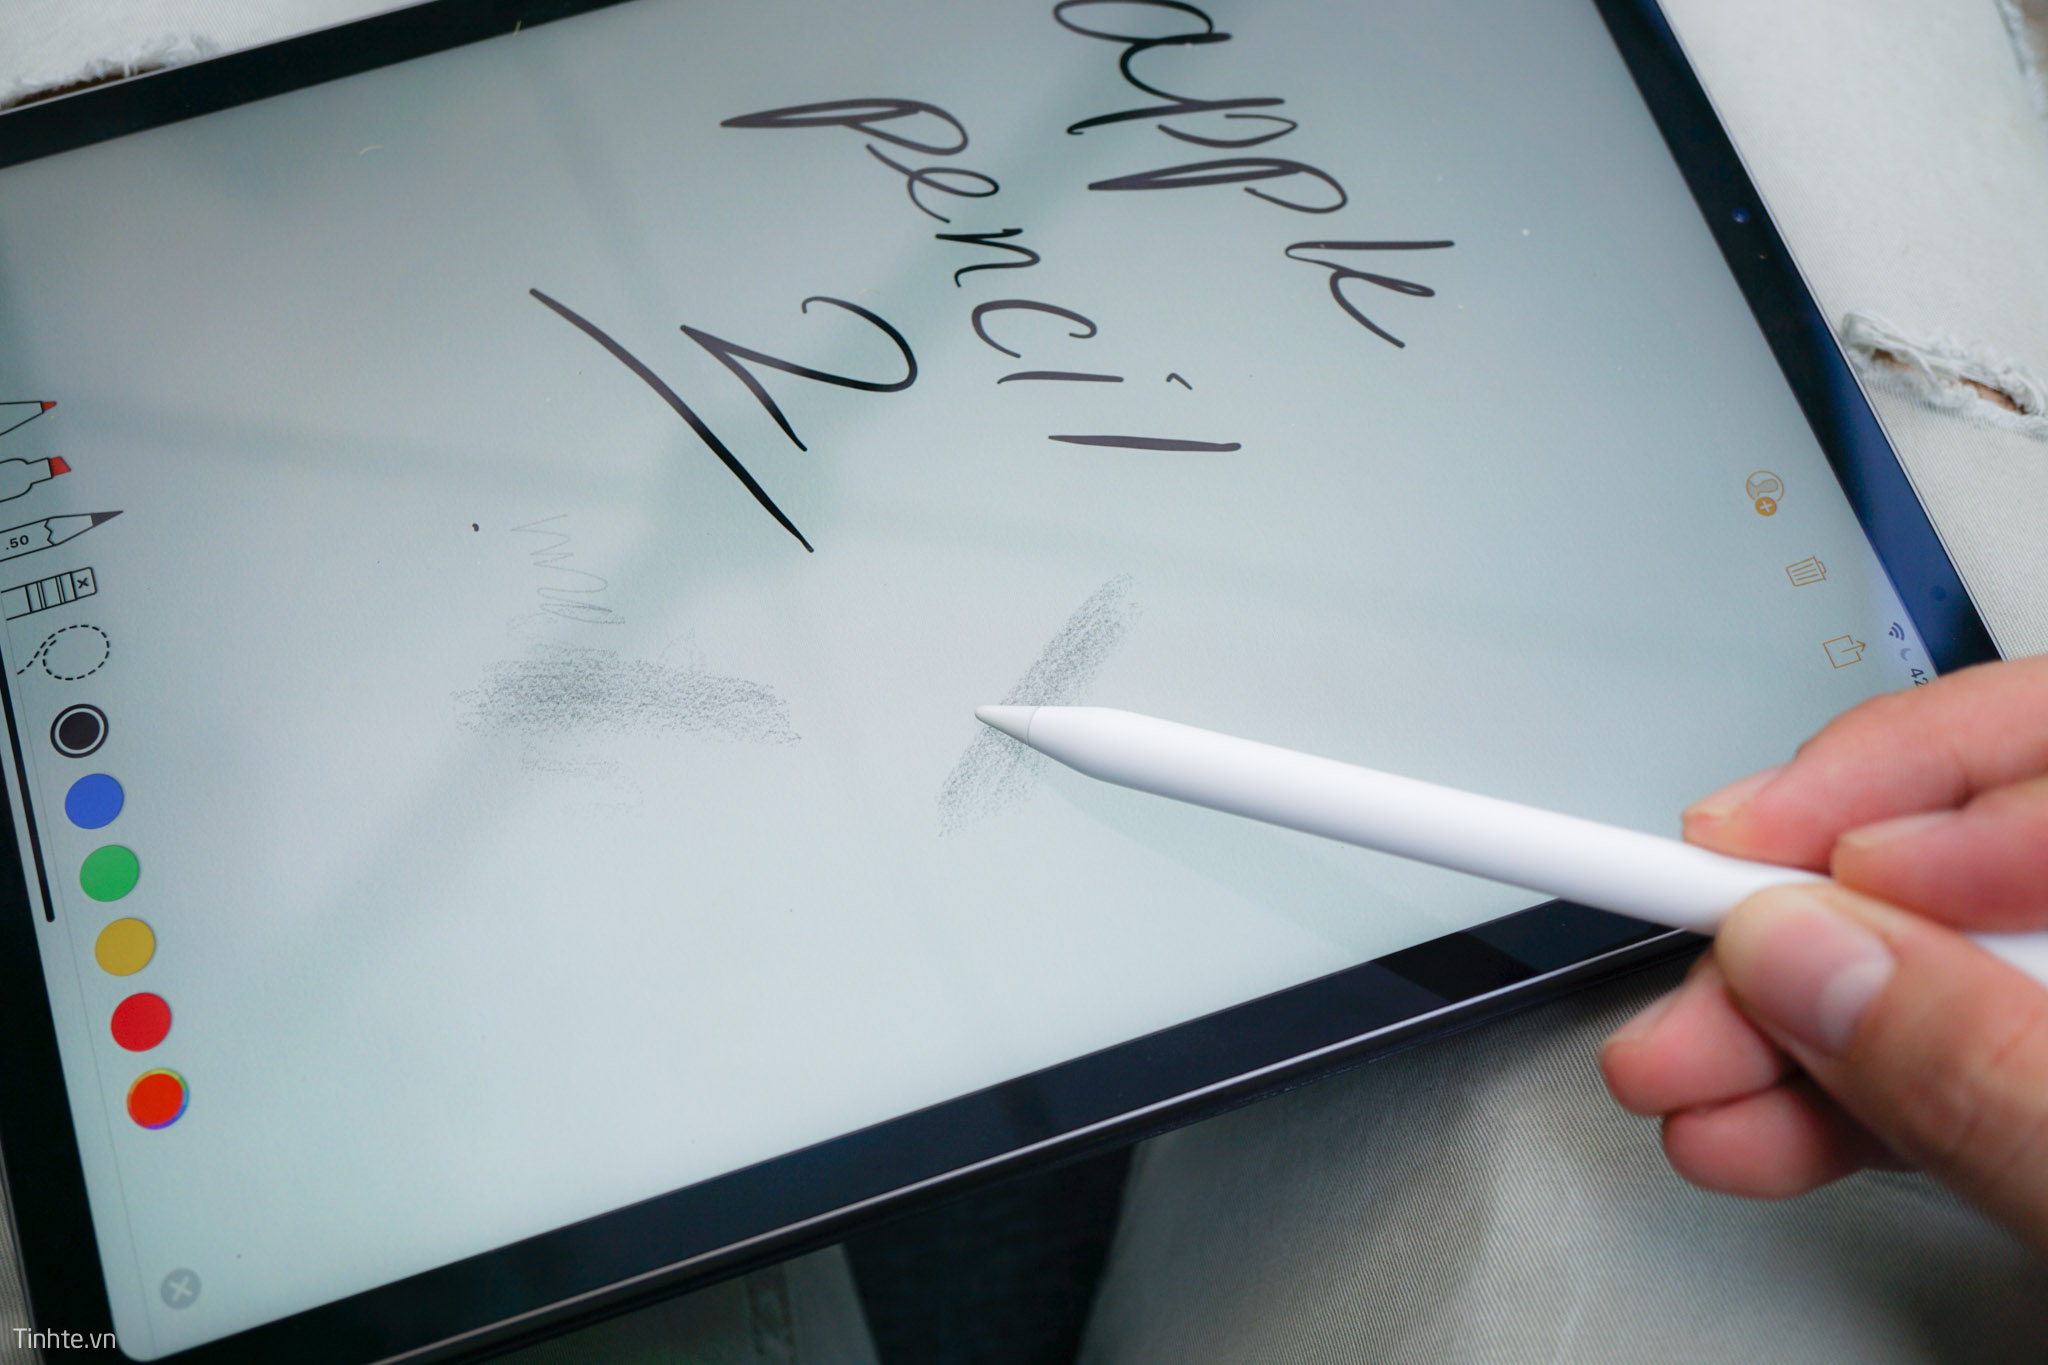 apple
pencil
2
.50
42
Tinhte.vn